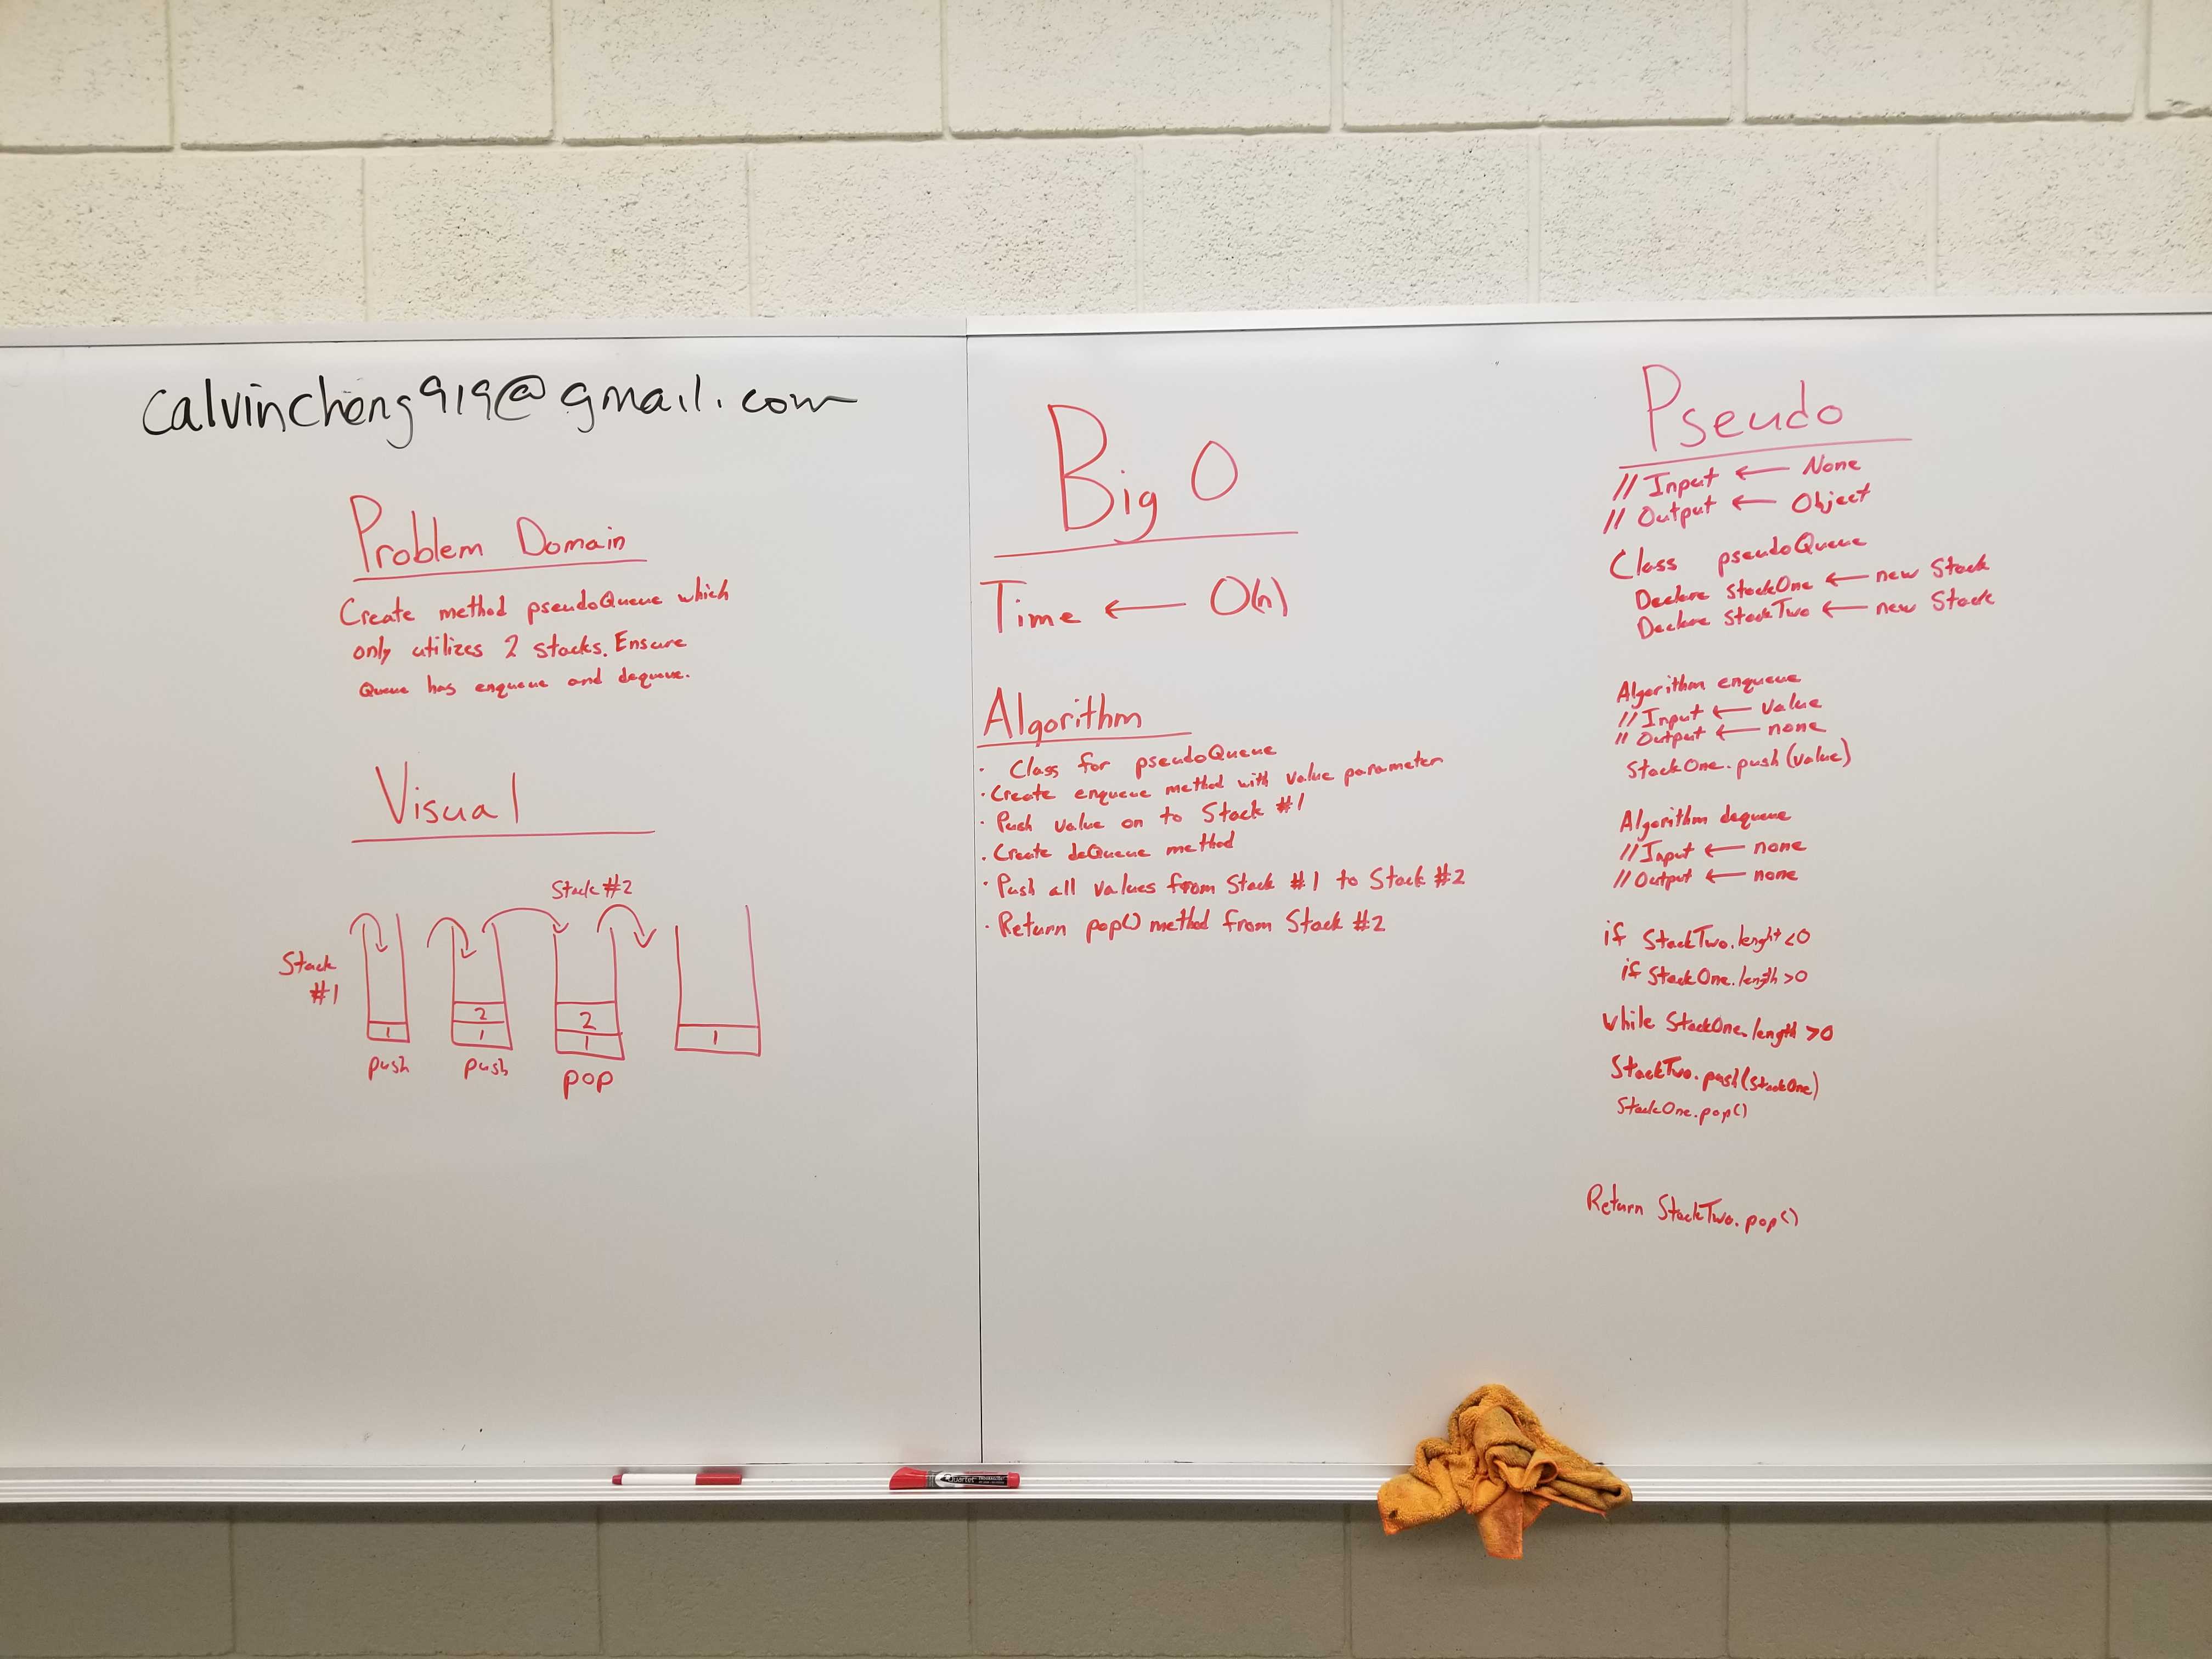 calvincheng919@gmail.com
Problem Domain
Create method pseudoQueue which
only utilizes 2 stacks. Ensure
Queue has enqueue and dequeue.
Visual
Stack #2
Stack
#1
1
2
1
2
1
1
push
push
pop
Big O
Time ← O(n)
Algorithm
· Class for pseudoQueue
· Create enqueue method with value parameter
· Push value on to Stack #1
· Create deQueue method
· Push all values from Stack #1 to Stack #2
· Return pop() method from Stack #2
Pseudo
// Input ← None
// Output ← Object
Class pseudoQueue
Declare StackOne ← new Stack
Declare StackTwo ← new Stack
Algorithm enqueue
// Input ← value
// Output ← none
StackOne.push(value)
Algorithm dequeue
// Input ← none
// Output ← none
if StackTwo.lenght<0
if StackOne.length>0
while StackOne.length>0
StackTwo.push(StackOne)
StackOne.pop()
Return StackTwo.pop()
Quartet